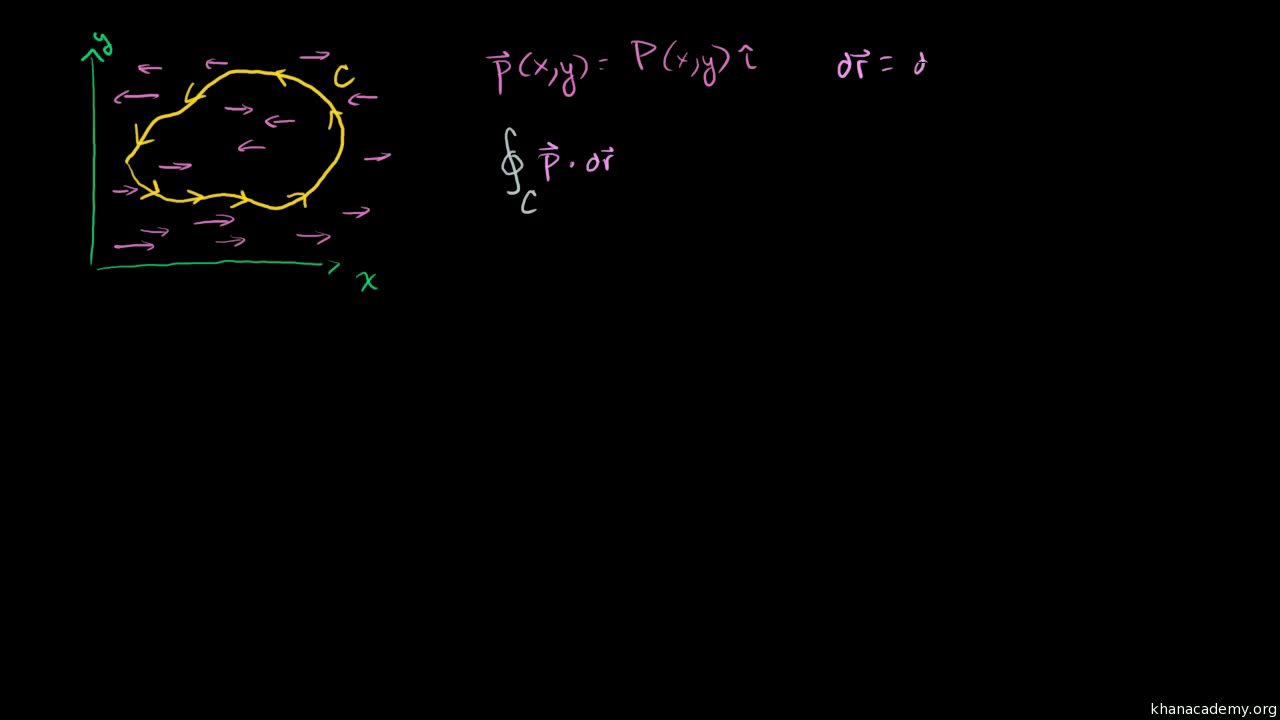 y
C
x
p⃗(x,y) = P(x,y) î
dr⃗ = d
∮_C p⃗ · dr⃗
khanacademy.org